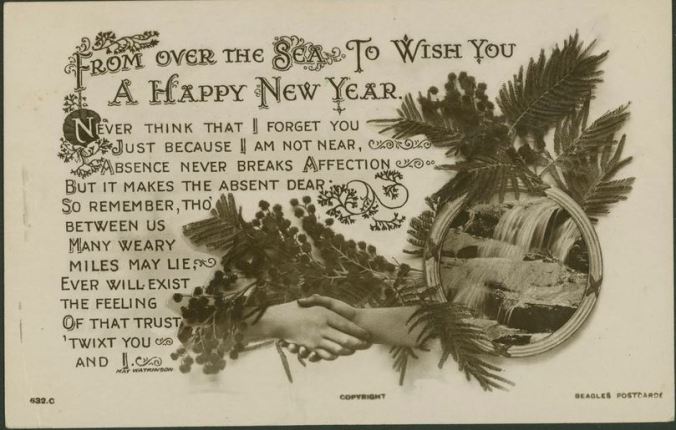 FROM OVER THE SEA TO WISH YOU
A HAPPY NEW YEAR.
NEVER THINK THAT I FORGET YOU
JUST BECAUSE I AM NOT NEAR,
ABSENCE NEVER BREAKS AFFECTION
BUT IT MAKES THE ABSENT DEAR;
SO REMEMBER, THO'
BETWEEN US
MANY WEARY
MILES MAY LIE,
EVER WILL EXIST
THE FEELING
OF THAT TRUST
'TWIXT YOU
AND I.
MAY WATKINSON
632.C
COPYRIGHT
BEAGLES POSTCARDS